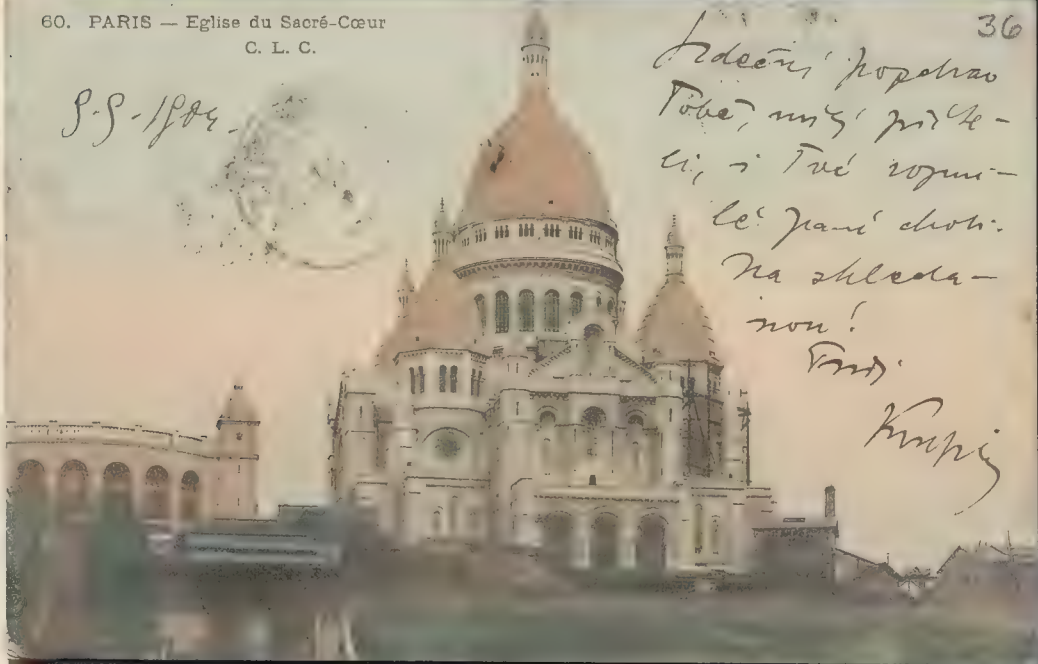 60. PARIS — Eglise du Sacré-Cœur
C. L. C.
36
Srdečný pozdrav
Tobě, milý příte-
li, i Tvé rozmi-
lé paní choti.
Na shleda-
nou!
Tvůj